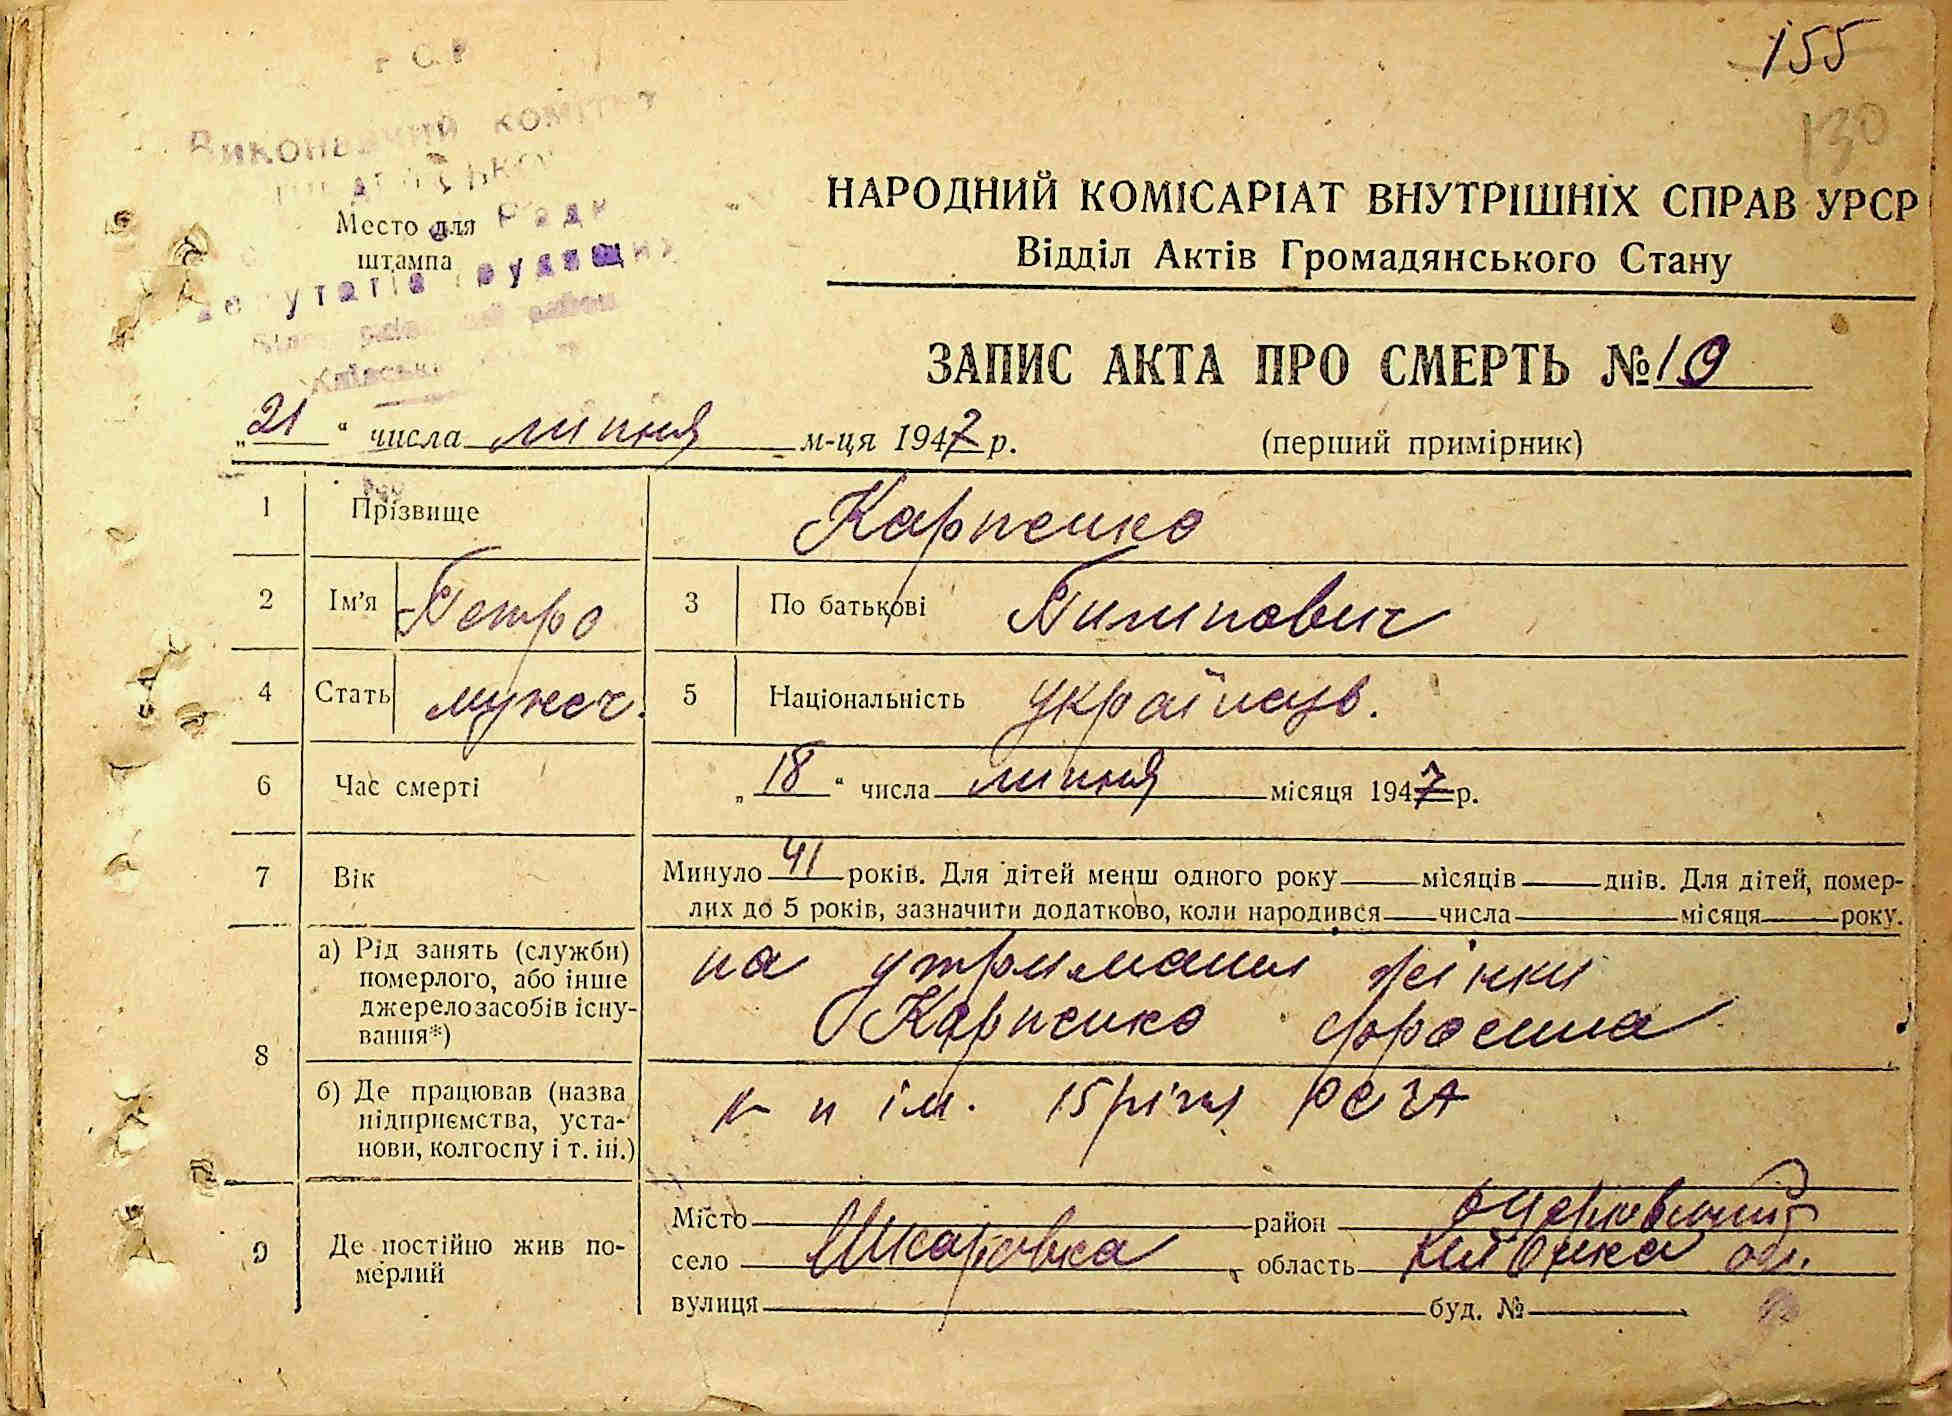 155
130
Виконавчий комітет
Ради
Место для
штампа
депутатів трудящих
район
НАРОДНИЙ КОМІСАРІАТ ВНУТРІШНІХ СПРАВ УРСР
Відділ Актів Громадянського Стану
ЗАПИС АКТА ПРО СМЕРТЬ № 19
„21“ числа липня м-ця 1947 р.
(перший примірник)
1 Прізвище Карпенко
2 Ім'я Петро 3 По батькові Пилипович
4 Стать мужеч. 5 Національність українцьв.
6 Час смерті „18“ числа липня місяця 1947 р.
7 Вік Минуло 41 років. Для дітей менш одного року місяців днів. Для дітей, помер-
лих до 5 років, зазначити додатково, коли народився числа місяця року.
8 а) Рід занять (служби)
померлого, або інше
джерело засобів існу-
вання*)
на утриманні жінки
Карпенко Фросина
б) Де працював (назва
підприємства, уста-
нови, колгоспу і т. ін.)
к п ім. 15 річч РСЧА
9 Де постійно жив по-
мерлий
Місто район
село Шкаровка область Київська об.
вулиця буд. №